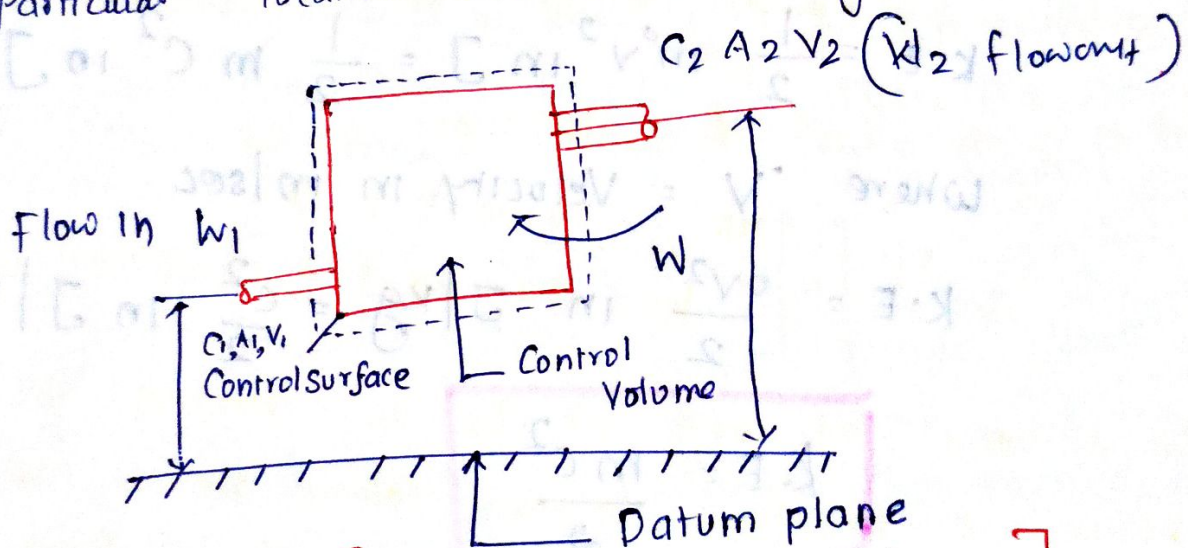 C2 A2 V2 (W2 flowout)
Flow in W1
W
C1, A1, V1
Control surface
Control
Volume
Datum plane